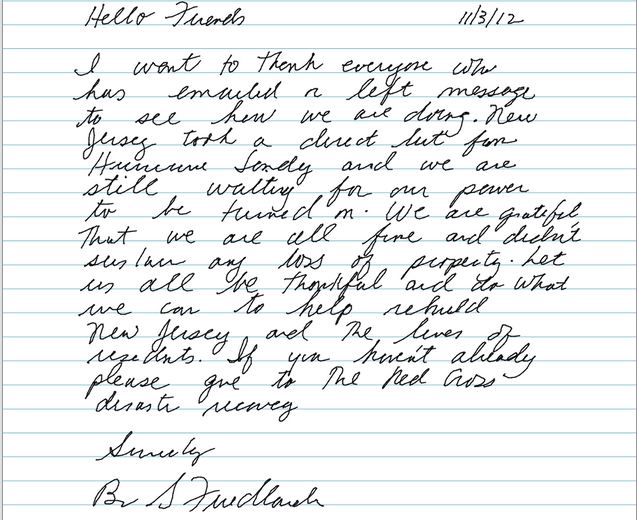 Hello Friends 11/3/12
I want to thank everyone who
has emailed or left message
to see how we are doing. New
Jersey took a direct hit from
Hurricane Sandy and we are
still waiting for our power
to be turned on. We are grateful
that we are all fine and didn't
sustain any loss of property. Let
us all be thankful and do what
we can to help rebuild
New Jersey and the lives of
residents. If you haven't already
please give to The Red Cross
disaster recovery
Sincerely
S Friedlander